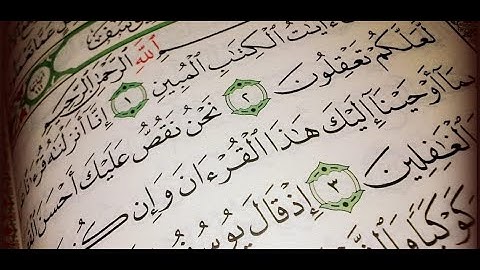 ٱللَّهِ ٱلرَّحْمَٰنِ ٱلرَّحِيمِ
ءَايَٰتُ ٱلْكِتَٰبِ ٱلْمُبِينِ ١ إِنَّآ أَنزَلْنَٰهُ
لَّعَلَّكُمْ تَعْقِلُونَ ٢ نَحْنُ نَقُصُّ عَلَيْكَ أَحْسَنَ
بِمَآ أَوْحَيْنَآ إِلَيْكَ هَٰذَا ٱلْقُرْءَانَ وَإِن
ٱلْغَٰفِلِينَ ٣ إِذْ قَالَ يُوسُفُ
كَوْكَبًا